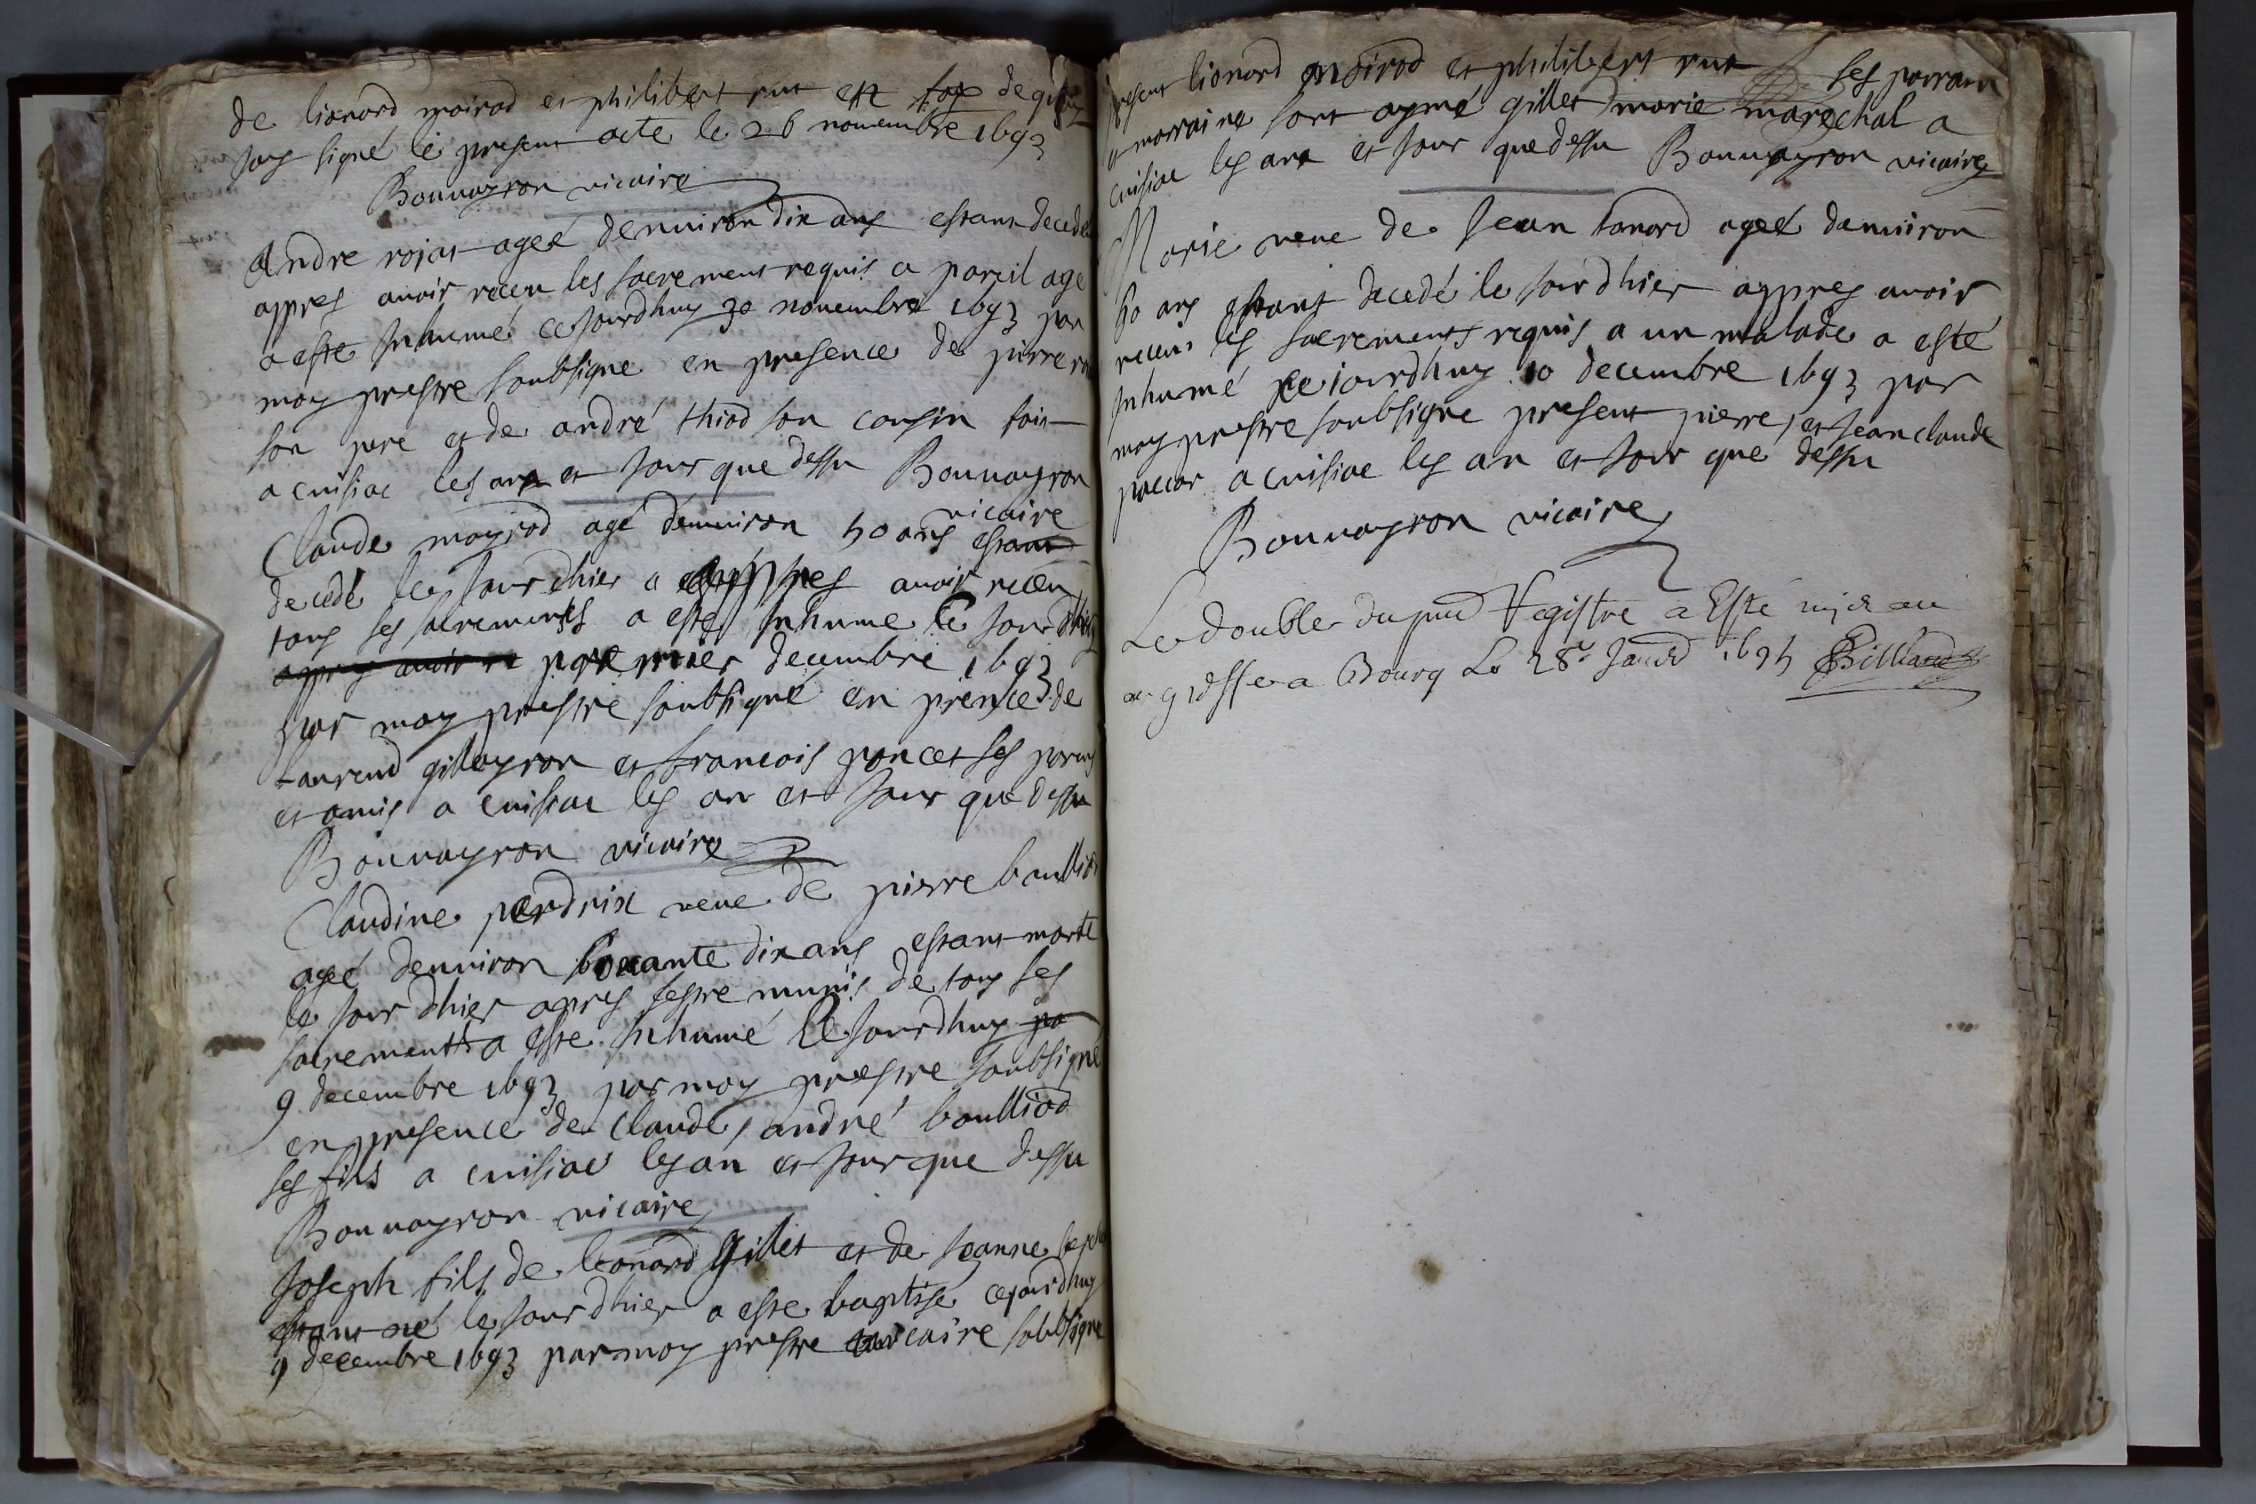 de lionord moirod et philibert rut en foy de quoy
soub signé le present acte le 26 novembre 1693
Bonnayron vicaire
Andre rojat ageé denniron dix ans estant decedé
appres avoir receu les sacrement requis a pareil age
a esté Inhumé cejourdhuy 30 novembre 1693 par
moy prestre soubsigne en presence de pierre
son pere et de andré thiod son cousin fait
a cuisiac les an et jour que dessu Bonnayron
vicaire
Claude moyrod agé denniron 50 ans estant
decedé le jour dhier a appres avoir receu
tous ses sacrements a esté Inhume le jour dhuy
appres avoir re premier decembre 1693
par moy prestre soubsigné en prence de
laurend gilleyron et francois poncet ses parens
et amis a cuisiac les an et jour que dessu
Bonnayron vicaire
Claudine perdrix veve de pierre boulliod
ageé denniron soixante dix ans estant morte
le jour dhier appres sestre munis de tous ses
sacrements a esté Inhumé Cejourdhuy pa
9 decembre 1693 par moy prestre soubsigné
en presence de Claude, andré boulliod
ses fils a cuisiac les an et jour que dessu
Bonnayron vicaire
Joseph fils de leonord gillet et de Jeanne
estant né le jour dhier a esté baptisé cejourdhuy
9 decembre 1693 par moy prestre vicaire soubsigne
present lionord moirod et philibert rut ses parrain
et marraine sont aymé gillet marie marechal a
cuisiac les an et jour que dessu Bonnayron vicaire
Marie veve de Jean tonord ageé danniron
60 ans estant decedé le jour dhier appres avoir
receus les sacrements requis a un malade a esté
Inhumé cejourdhuy 10 decembre 1693 par
moy prestre soubsigne present pierre, et Jean claude
paccar a cuisiac les an et jour que dessu
Bonnayron vicaire
Le double du pnt Registre a Esté mis au
au greffe a Bourg Le 28e Janvr 1694 Billiand